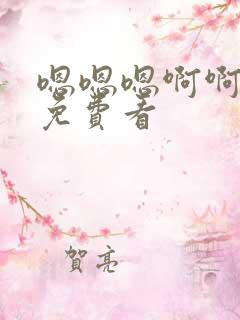 嗯嗯嗯啊啊
免费看
賀亮